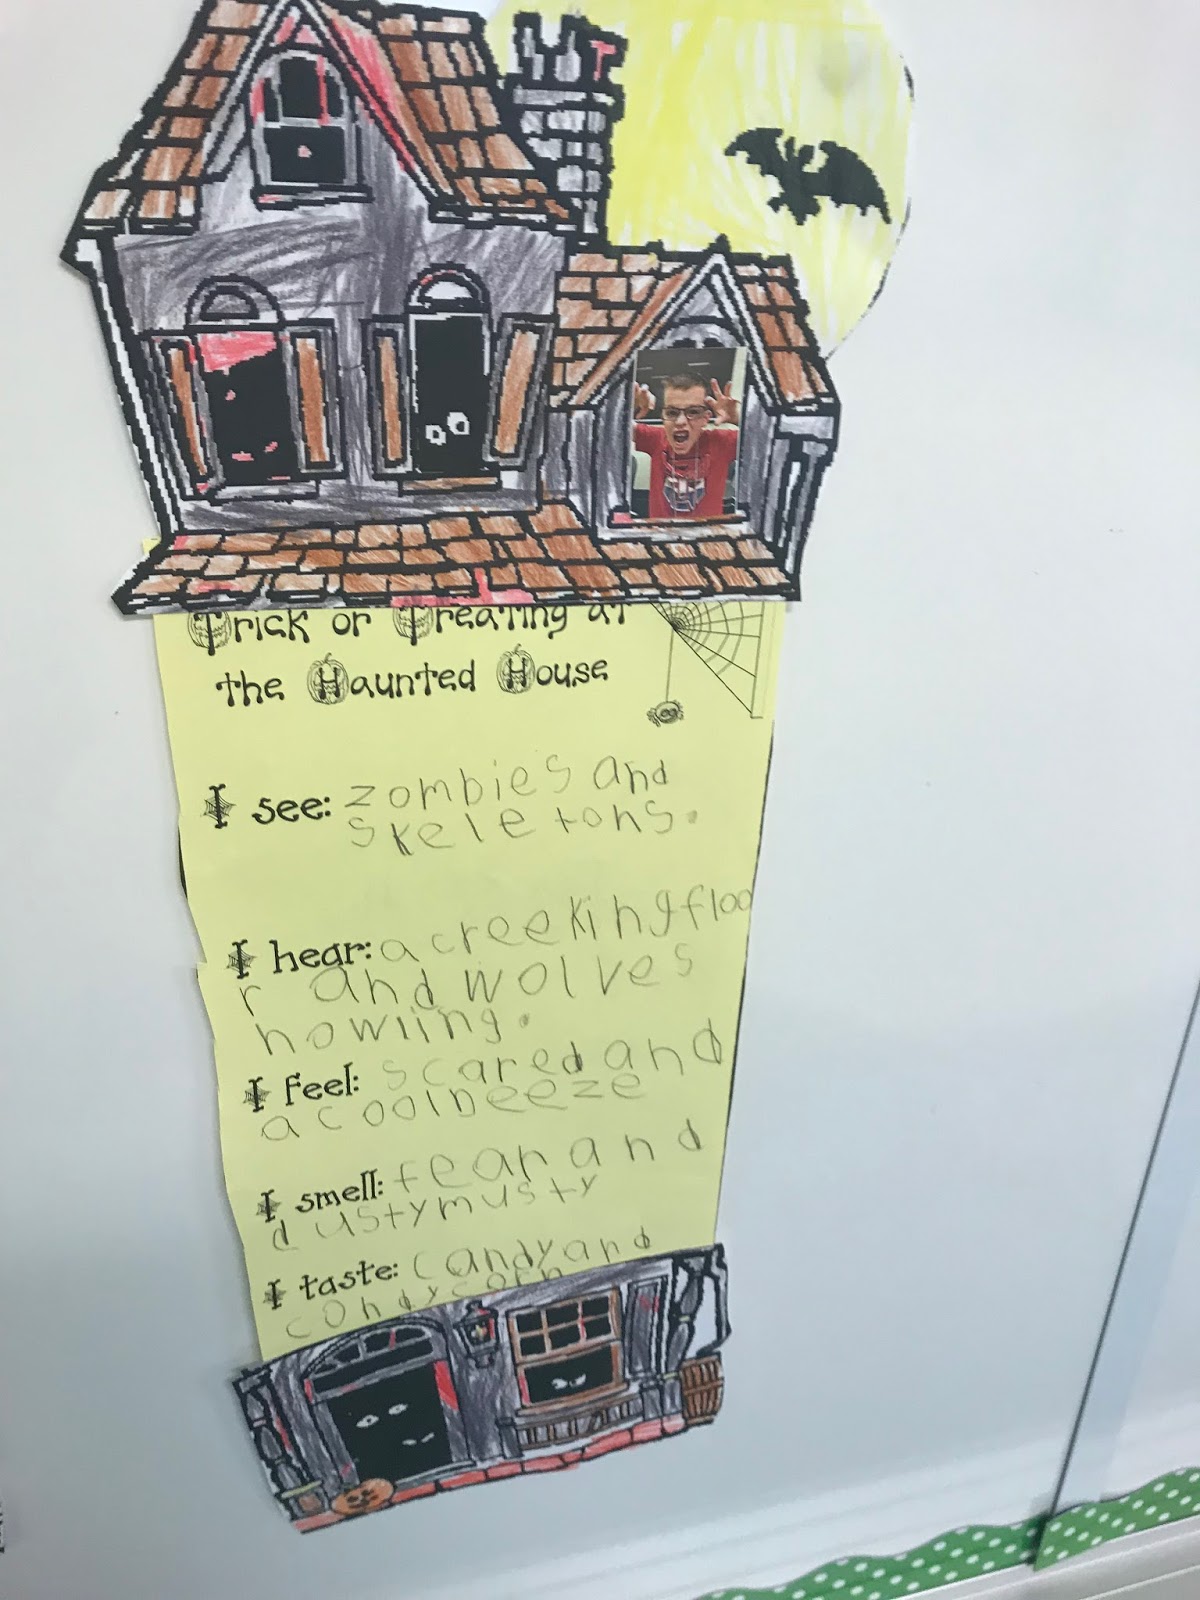 Trick or Treating at
the Haunted House
I see: zombies and
skeletons.
I hear: a creeking floo
r and wolves
howling.
I feel: scared and
a cool beeze
I smell: fear and
dusty musty
I taste: candy and
condy corn